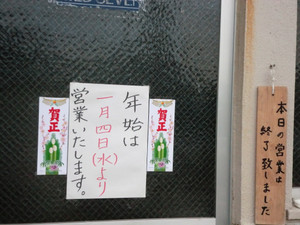 年始は
一月四日(水)より
営業いたします。
賀正
賀正
本日の営業は
終了致しました